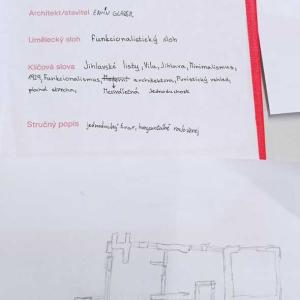 Architekt/stavitel ERVÍN GLASER,
Umělecký sloh Funkcionalistický sloh
Klíčová slova Jihlavské listy, Vila, Jihlava, Minimalismus,
1929, Funkcionalismus, architektura, Puristický vzhled,
plochá střecha, Meziválečná Jednoduchost
Stručný popis jednoduchý tvar, horizontálně rozložený